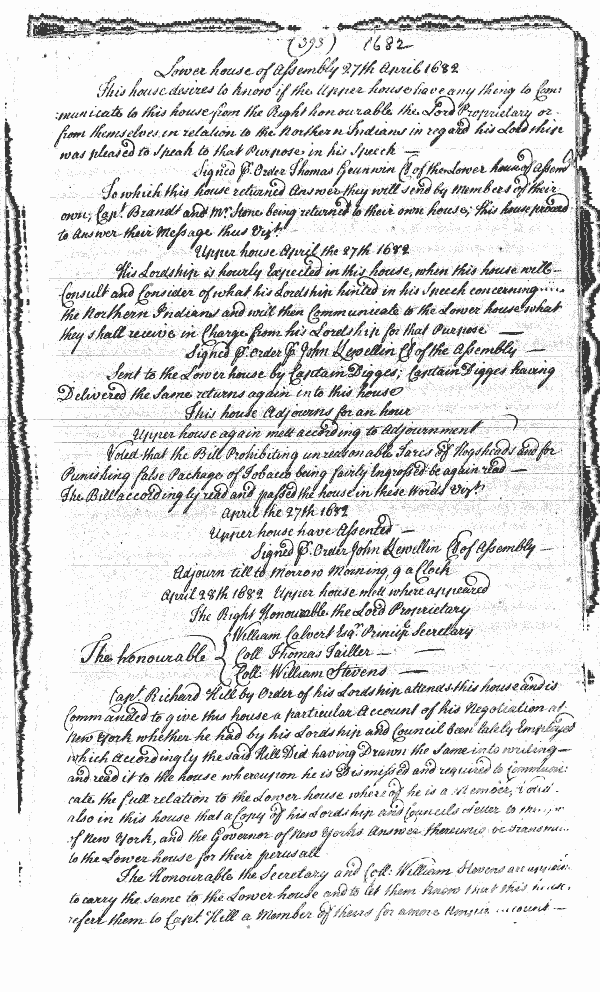 (393) 1682
Lower house of Assembly 27th April 1682
This house desires to know if the Upper house have any thing to Com:
:municate to this house from the Right honourable the Lord Proprietary or
from themselves in relation to the Northern Indians in regard his Lordship
was pleased to Speak to that Purpose in his Speech —
Signed P. Order Thomas Grunwin Cl of the Lower house of Assem
To which this house returned Answer they will send by Members of their
own, Capt. Brandt and Mr. Stone being returned to their own house; this house proceed
to Answer their Message thus Vizt.
Upper house April the 27th 1682
His Lordship is hourly Expected in this house, when this house will
Consult and Consider of what his Lordship hinted in his Speech concerning
the Northern Indians and will then Communicate to the Lower house what
they shall receive in Charge from his Lordship for that Purpose —
Signed P. Order P. John Lewellin Cl of the Assembly —
Sent to the Lower house by Captain Digges; Captain Digges having
Delivered the Same returns again into this house
This house Adjourns for an hour
Upper house again mett according to Adjournment
Voted that the Bill Prohibiting unreasonable Tares of Hogsheads and for
Punishing false Package of Tobacco being fairly Engrossed be again read —
The Bill accordingly read and passed the house in these Words Vizt.
April the 27th 1682
Upper house have Assented —
Signed P. Order John Lewillin Cl of Assembly —
Adjourn till to Morrow Morning, 9 a Clock
April 28th 1682 Upper house mett where appeared
The Right Honourable the Lord Proprietary
William Calvert Esqr. Princip Secretary
The honourable { Coll Thomas Tailler —
Coll. William Stevens —
Capt. Richard Hill by Order of his Lordship attends this house and is
Commanded to give this house a particular Account of his Negotiation at
New York whether he had by his Lordship and Council been lately Employed
which Accordingly the said Hill Did having Drawn the Same into writing —
and read it to the house whereupon he is Dismissed and required to Communi:
cate the full relation to the Lower house whereof he is a Member,
also in this house that a Copy of his Lordship and Councils Letter to
of New York, and the Governor of New Yorks Answer thereunto be
to the Lower house for their perusall
The Honourable the Secretary and Coll. William Stevens are
to carry the same to the Lower house and to let them know that this
referr them to Capt. Hill a Member of theirs for a more Ample —